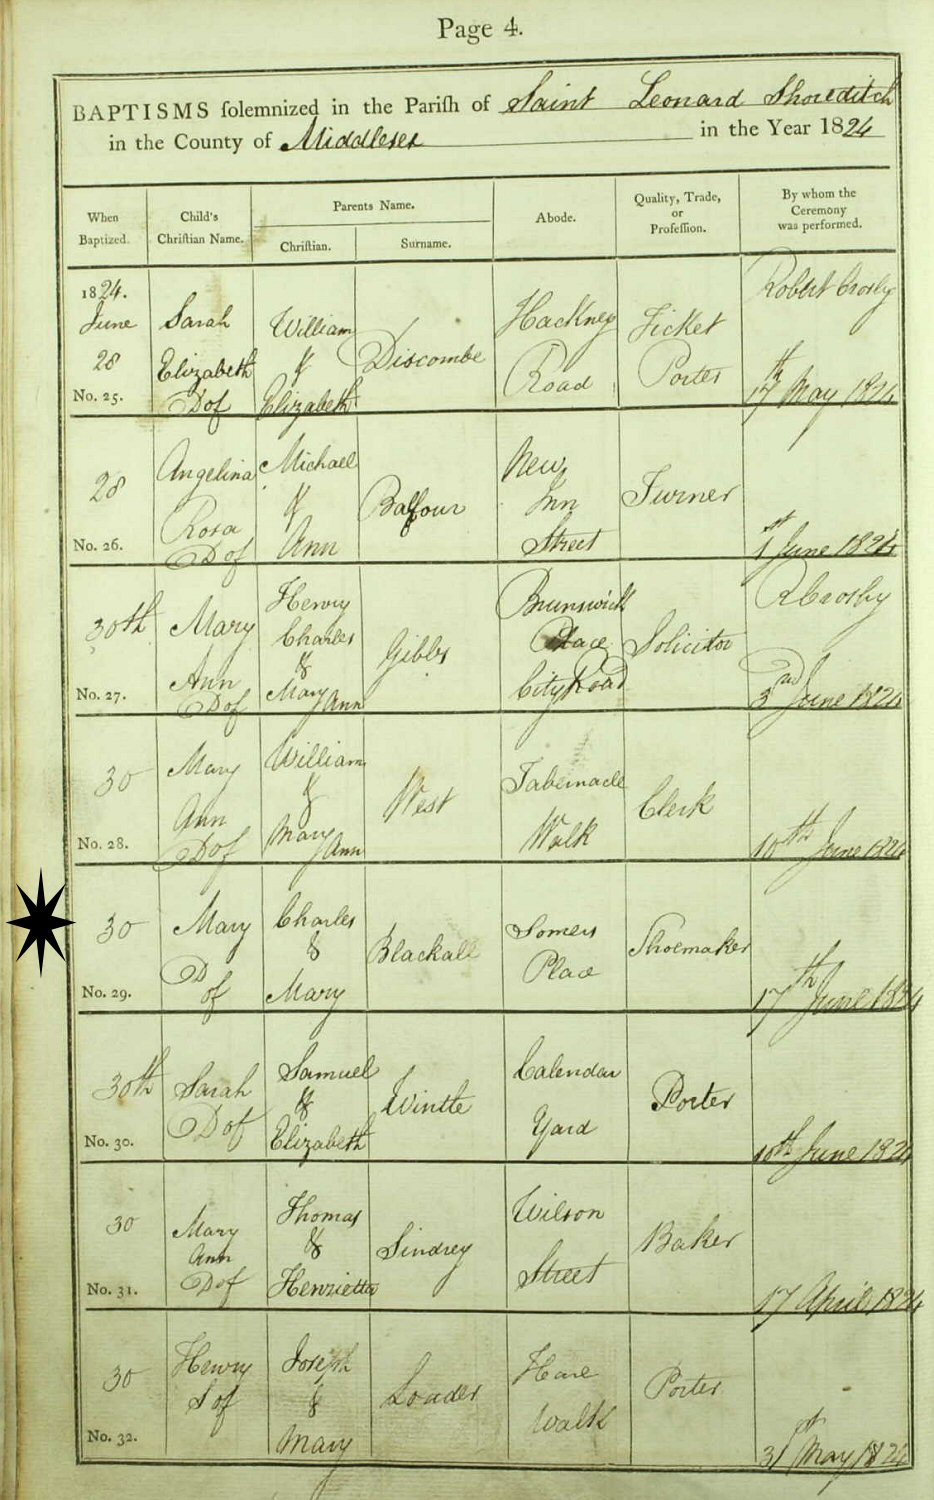 Page 4.
BAPTISMS solemnized in the Parish of Saint Leonard Shoreditch
in the County of Middlesex in the Year 1824
When Baptized.
Child's Christian Name.
Parents Name.
Christian.
Surname.
Abode.
Quality, Trade, or Profession.
By whom the Ceremony was performed.
1824.
June
28
No. 25.
Sarah
Elizabeth
D of
William
&
Elizabeth
Discombe
Hackney
Road
Ticket
Porter
Robert Crosby
17th May 1824
28
No. 26.
Angelina
Rosa
D of
Michael
&
Ann
Balfour
New
Inn
Street
Turner
1st June 1824
30th
No. 27.
Mary
Ann
D of
Henry
Charles
&
Mary Ann
Gibbs
Brunswick
Place
City Road
Solicitor
R Crosby
3rd June 1824
30
No. 28.
Mary
Ann
D of
William
&
Mary Ann
West
Tabernacle
Walk
Clerk
10th June 1824
30
No. 29.
Mary
D
of
Charles
&
Mary
Blackall
Somers
Place
Shoemaker
17th June 1824
30th
No. 30.
Sarah
D of
Samuel
&
Elizabeth
Wintle
Calendar
Yard
Porter
10th June 1824
30
No. 31.
Mary
Ann
D of
Thomas
&
Henrietta
Sindrey
Wilson
Street
Baker
17 April 1824
30
No. 32.
Henry
S of
Joseph
&
Mary
Loader
Hare
Walk
Porter
31st May 1824